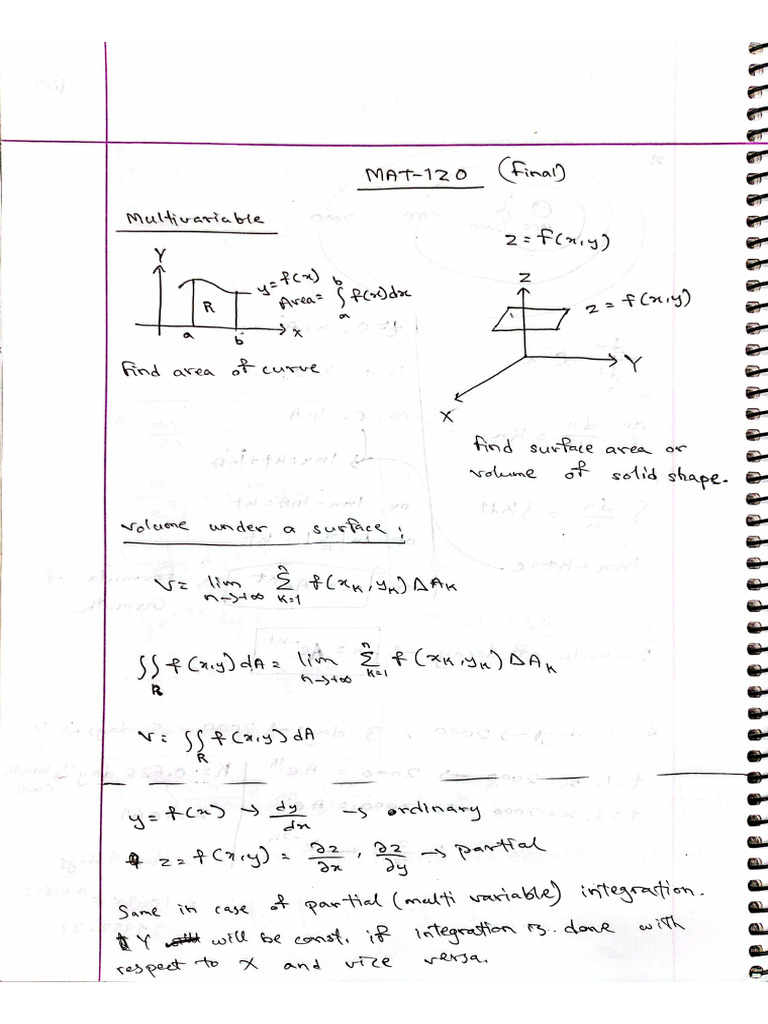 MAT-120 (Final)
Multivariable
z = f(x,y)
Y
y = f(x)
Area = ∫_a^b f(x)dx
R
a b x
Find area of curve
Z
z = f(x,y)
Y
X
find surface area or
volume of solid shape.
volume under a surface:
V = lim_{n→+∞} Σ_{k=1}^{n} f(x_k, y_k) ΔA_k
∬_R f(x,y) dA = lim_{n→+∞} Σ_{k=1}^{n} f(x_k, y_k) ΔA_k
V = ∬_R f(x,y) dA
y = f(x) → dy/dx → ordinary
z = f(x,y) = ∂z/∂x , ∂z/∂y → partial
Same in case of partial (multi variable) integration.
Y will be const. if integration is done with
respect to X and vice versa.